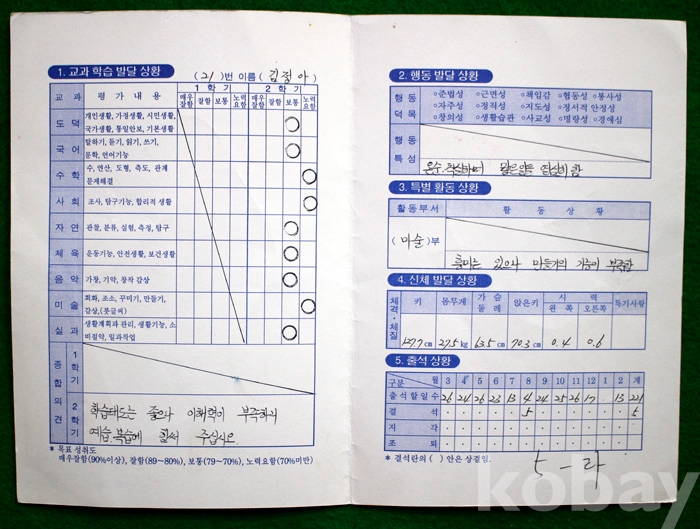 1. 교과 학습 발달 상황
(21)번 이름(김정아)
교 과 평 가 내 용 1 학 기 2 학 기
매우잘함 잘함 보통 노력요함 매우잘함 잘함 보통 노력요함
도 덕 개인생활, 가정생활, 시민생활,
국가생활, 통일안보, 기본생활 ○
국 어 말하기, 듣기, 읽기, 쓰기,
문학, 언어기능 ○
수 학 수, 연산, 도형, 측도, 관계
문제해결 ○
사 회 조사, 탐구기능, 합리적 생활 ○
자 연 관찰, 분류, 실험, 측정, 탐구 ○
체 육 운동기능, 안전생활, 보건생활 ○
음 악 가창, 기악, 창작 감상 ○
미 술 회화, 조소, 꾸미기, 만들기,
감상,(붓글씨) ○
실 과 생활계획과 관리, 생활기능, 소
비절약, 일과작업 ○
종합의견
1학기
2학기
학습태도는 좋으나 이해력이 부족하니
예습 복습에 힘써 주십시오
* 목표 성취도
매우잘함(90%이상), 잘함(89~80%), 보통(79~70%), 노력요함(70%미만)
2. 행동 발달 상황
행 동 덕 목
○준법성 ○근면성 ○책임감 ○협동성 ○봉사성
○자주성 ○정직성 ○지도성 ○정서적 안정성
○창의성 ○생활습관 ○사교성 ○명랑성 ○경애심
행 동 특 성
온순, 착실하며 맡은일을 열심히 함
3. 특별 활동 상황
활동부서 활 동 상 황
(미술)부
흥미는 있으나 만들기의 기능이 부족함
4. 신체 발달 상황
체격·체질 키 몸무게 가슴둘레 앉은키 시 력 특기사항
왼 쪽 오른쪽
127.7 cm 27.5 kg 63.5 cm 70.3 cm 0.4 0.6
5. 출석 상황
구분 월 3 4 5 6 7 8 9 10 11 12 1 2 계
출석할일수 26 24 26 23 13 4 24 25 26 17 · 13 221
결 석 5 5
지 각
조 퇴
* 결석란의 ( ) 안은 상결임.
5-라
kobay